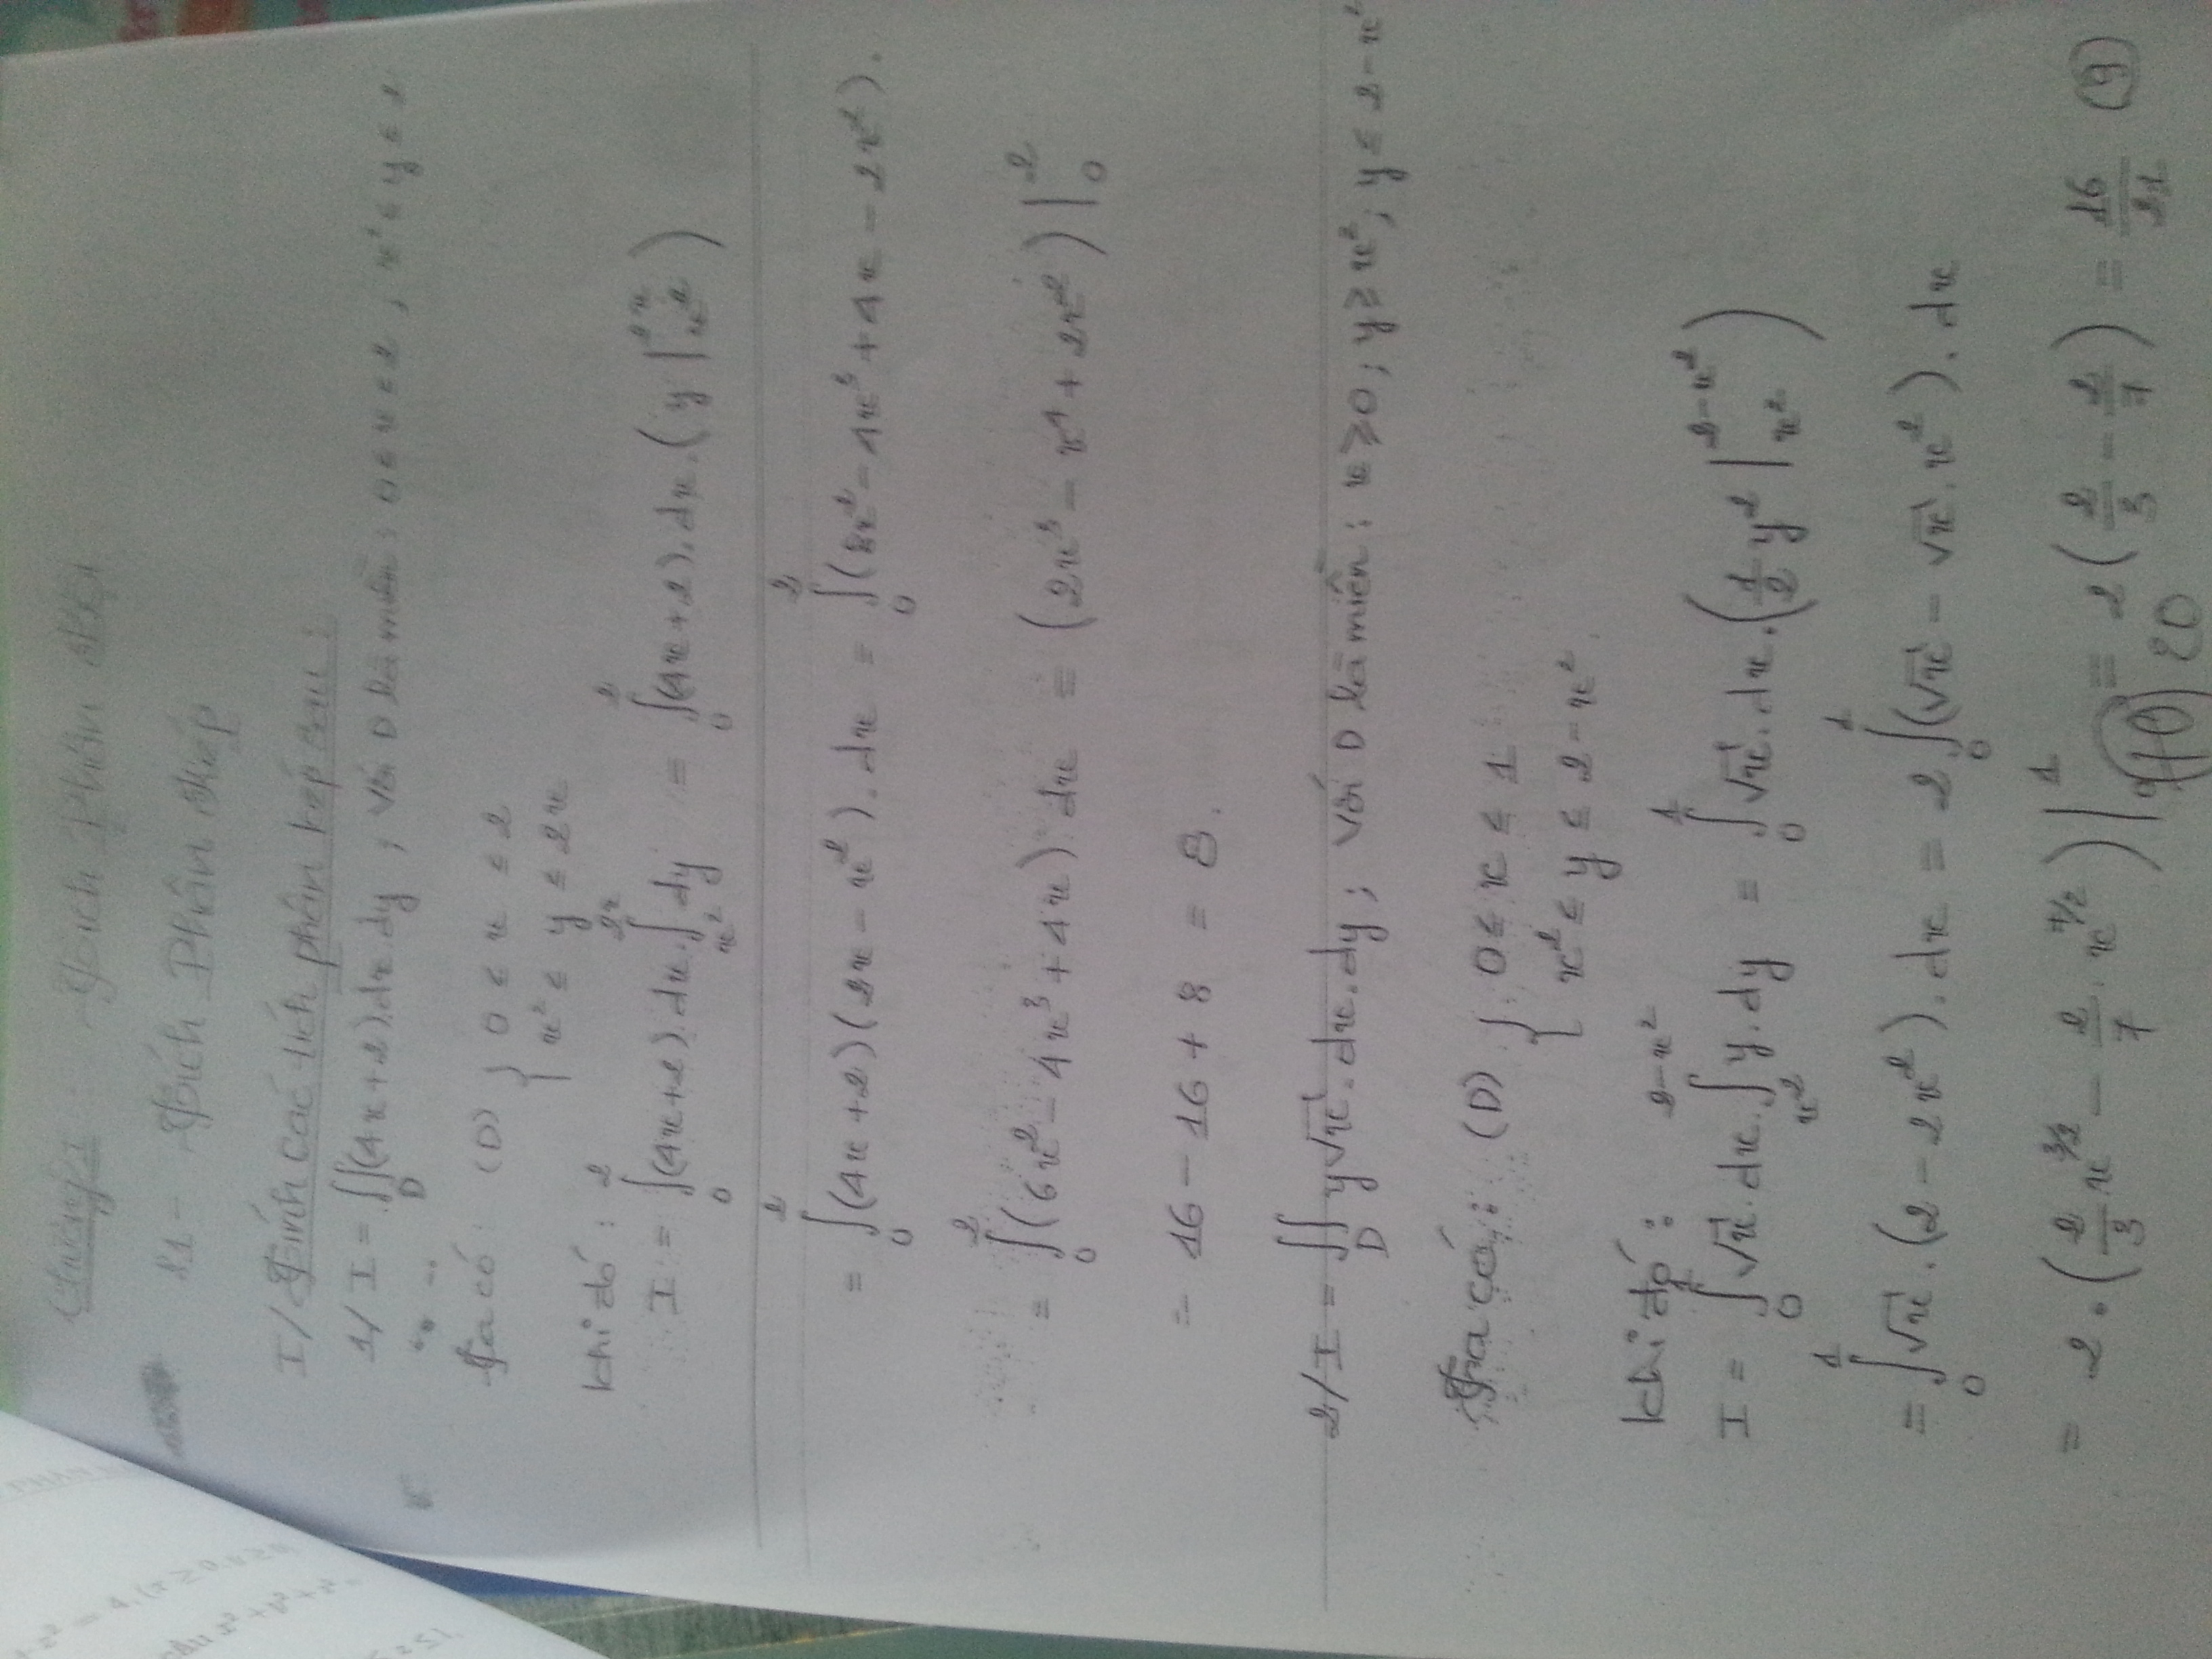 Chương 1 Tích Phân Bội
§1 - Tích Phân Kép
I/ Tính các tích phân kép sau :
1/ I = ∬_D (4x+2).dx.dy ; với D là miền : 0 ≤ x ≤ 2 ; x² ≤ y ≤ 2
Ta có : (D) { 0 ≤ x ≤ 2
x² ≤ y ≤ 2x
Khi đó :
I = ∫₀² (4x+2).dx.∫_{x²}^{2x} dy = ∫₀² (4x+2).dx.( y |_{x²}^{2x} )
= ∫₀² (4x+2)(2x - x²).dx = ∫₀² (8x² - 4x³ + 4x - 2x²).
= ∫₀² (6x² - 4x³ + 4x) dx = (2x³ - x⁴ + 2x²) |₀²
= 16 - 16 + 8 = 8.
2/ I = ∬_D y√x.dx.dy ; với D là miền : x ≥ 0 ; y ≥ x² ; y ≤ 2 - x²
Ta có : (D) { 0 ≤ x ≤ 1
x² ≤ y ≤ 2 - x².
Khi đó :
I = ∫₀¹ √x.dx.∫_{x²}^{2-x²} y.dy = ∫₀¹ √x.dx.( 1/2 y² |_{x²}^{2-x²} )
= ∫₀¹ √x.(2 - 2x²).dx = 2∫₀¹ (√x - √x.x²).dx
= 2.( 2/3 x^{3/2} - 2/7.x^{7/2} ) |₀¹ = 2( 2/3 - 2/7 ) = 16/21 (9)
(10) 20